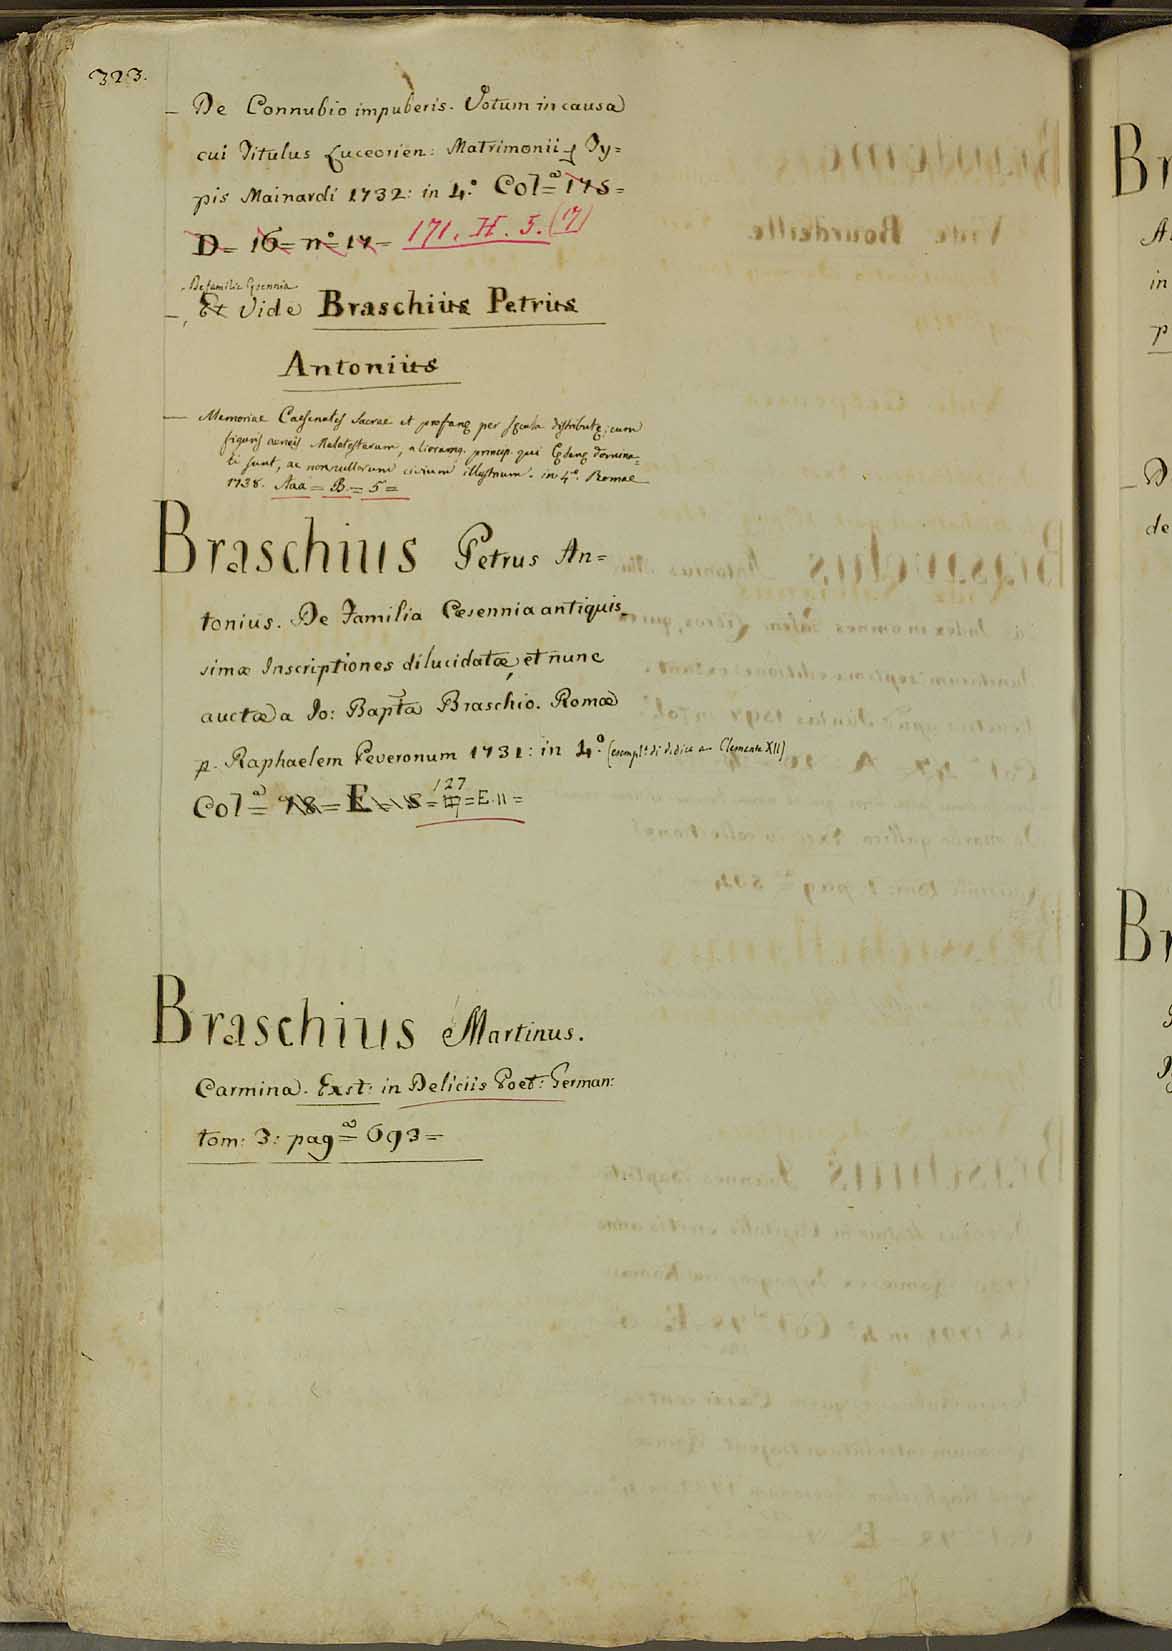 323.
– De Connubio impuberis. Votum in causa
cui Titulus Luceorien: Matrimonii ꝑ Ty=
pis Mainardi 1732: in 4.º Colª= 175=
D= 16= nº= 17= 171. H. 5. (17)
De familia Cesennia
–, Et Vide Braschius Petrus
Antonius
— Memoriae Caesenates sacrae et profanę per sęcula distributę; cum
figuris aeneis Malatestarum, aliorumq. princip. qui Cęsenę domina=
ti sunt, ac nonnullorum civium illustrium. in 4º. Romae
1738. Aaa= B= 5=
Braschius Petrus An=
tonius. De Familia Cesennia antiquis=
simæ Inscriptiones dilucidatæ, et nunc
auctæ a Jo: Bapta Braschio. Romæ
p. Raphaelem Peveronum 1731: in 4.º (esempl. di dedica a Clemente XII)
Colª= 78= E= 8= 127 = E. 11=
Braschius Martinus.
Carmina. Exst: in Deliciis Poet: German:
tom: 3: pagª= 693=
Br
in
P
– D
de
Br